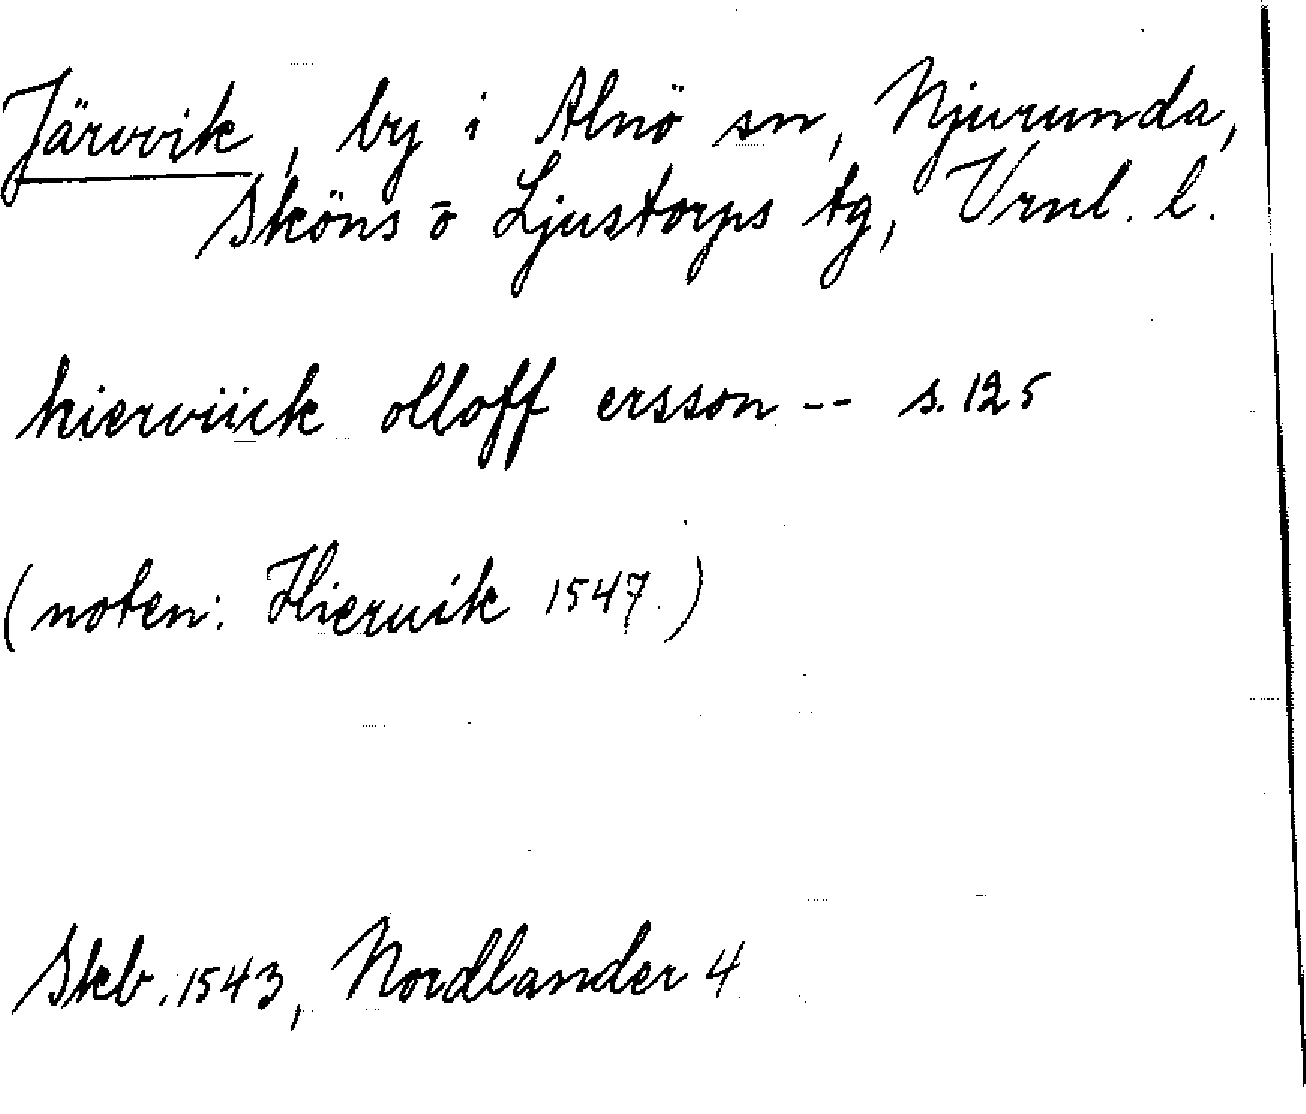 Järvvik, by i Alnö sn, Njurunda,
Sköns o Ljustorps tg, Vrnl. l.
hierviick olloff ersson -- s. 125
(noten: Hiervik 1547.)
Skb. 1543, Nordlander 4